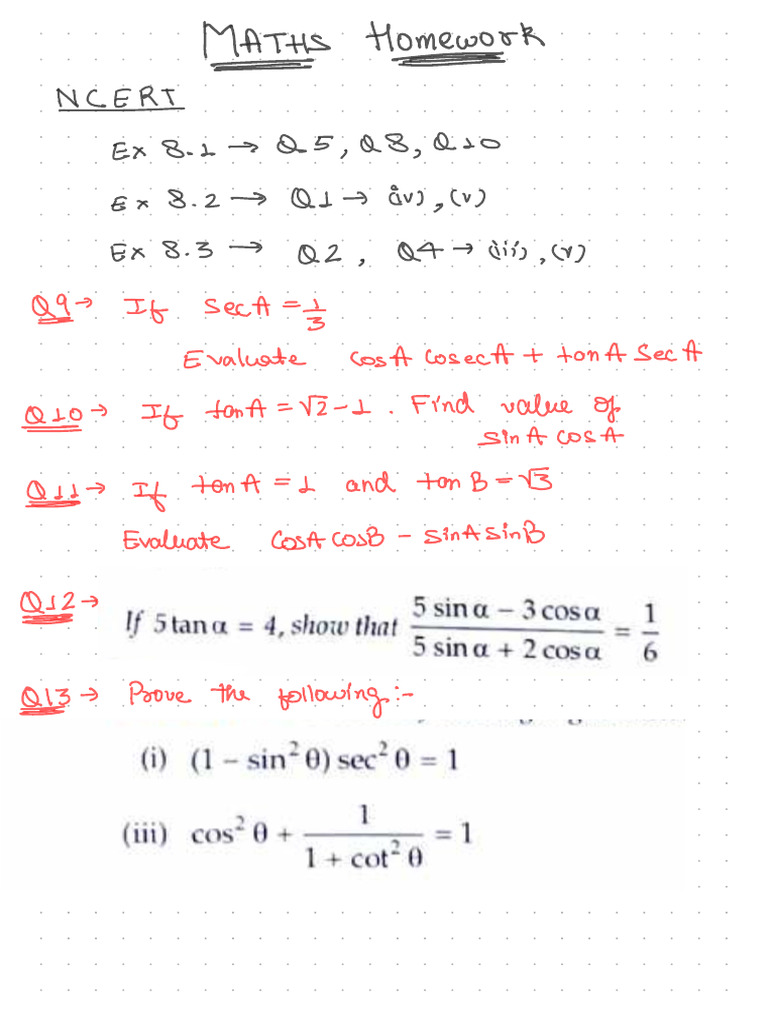 MATHS Homework
NCERT
Ex 8.1 → Q5, Q8, Q10
Ex 8.2 → Q1 → (iv), (v)
Ex 8.3 → Q2, Q4 → (iii), (v)
Q9 → If secA = 1/3
Evaluate cosA cosecA + tanA SecA
Q10 → If tanA = √2 - 1. Find value of
sinA cosA
Q11 → If tanA = 1 and tanB = √3
Evaluate cosA cosB - sinA sinB
Q12 → If 5 tan α = 4, show that (5 sin α - 3 cos α)/(5 sin α + 2 cos α) = 1/6
Q13 → Prove the following:-
(i) (1 - sin² θ) sec² θ = 1
(iii) cos² θ + 1/(1 + cot² θ) = 1